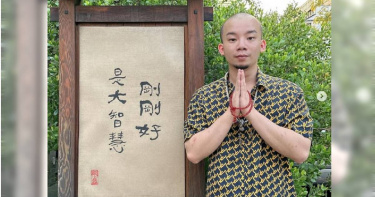 剛剛好
是大智慧